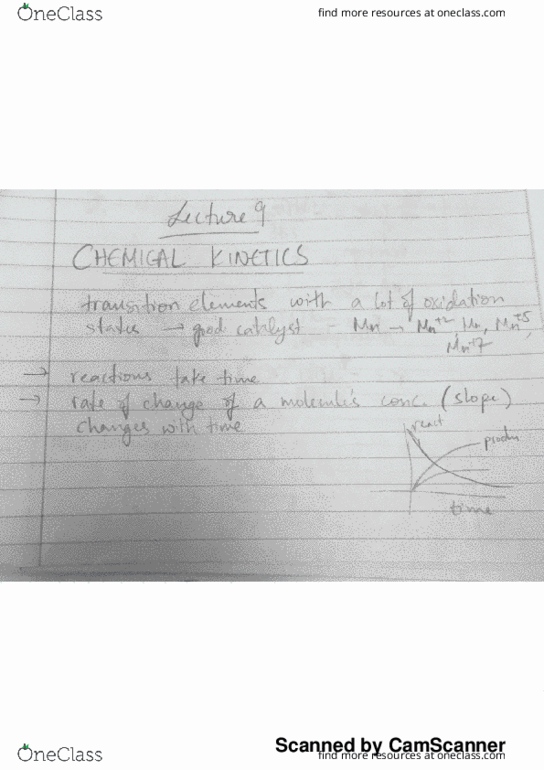 OneClass
find more resources at oneclass.com
Lecture 9
CHEMICAL KINETICS
transition elements with a lot of oxidation
states → good catalyst - Mn → Mn+2, Mn, Mn+5,
Mn+7
→ reactions take time
→ rate of change of a molecule's conc. (slope)
changes with time
react
produ
time
Scanned by CamScanner
OneClass
find more resources at oneclass.com